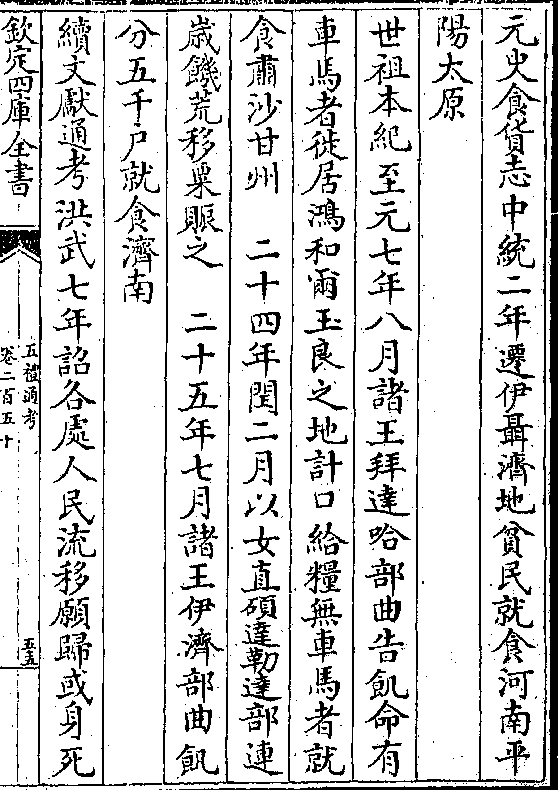 元史食貨志中統二年遷伊聶濟地貧民就食河南平
陽太原
世祖本紀至元七年八月諸王拜達哈部曲告飢命有
車馬者徙居鴻和爾玉良之地計口給糧無車馬者就
食肅沙甘州　二十四年閏二月以女直碩達勒達部連
歲饑荒移粟賑之　二十五年七月諸王伊濟部曲飢
分五千戶就食濟南
續文獻通考洪武七年詔各處人民流移願歸或身死
欽定四庫全書
五禮通考
卷二百五十
五五